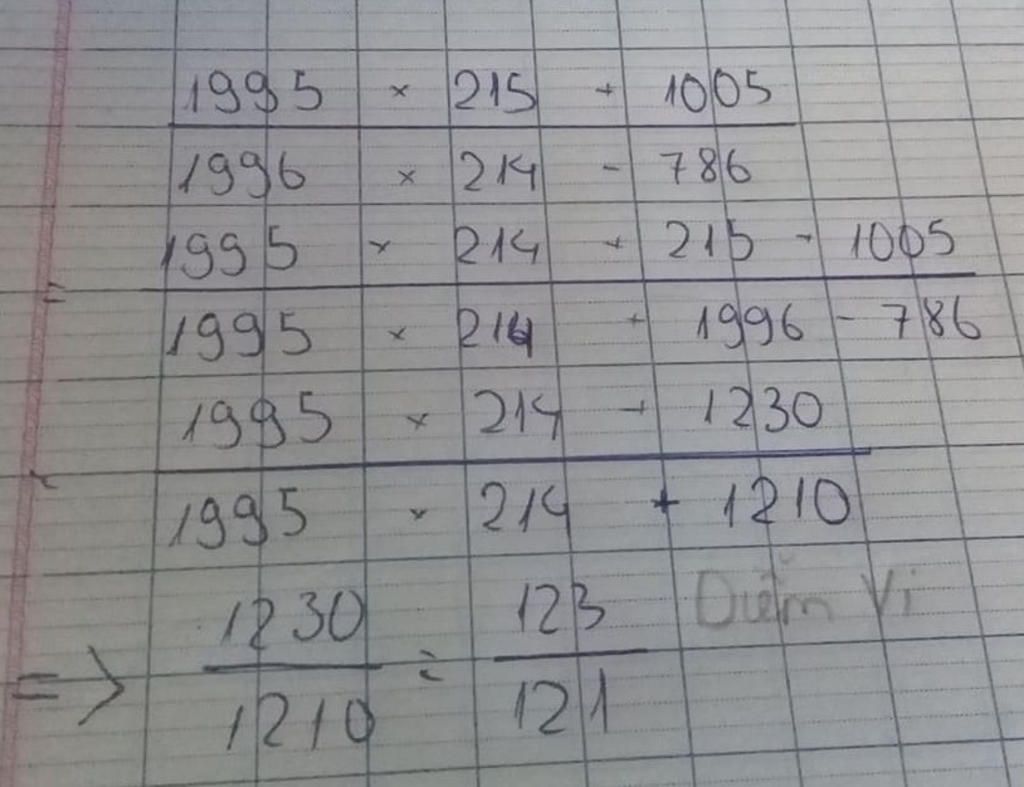 1995 × 215 + 1005
1996 × 214 - 786
= 1995 × 214 + 215 + 1005
1995 × 214 + 1996 - 786
= 1995 × 214 + 1230
1995 × 214 + 1210
=> 1230 = 123
1210 121
Diễm Vi